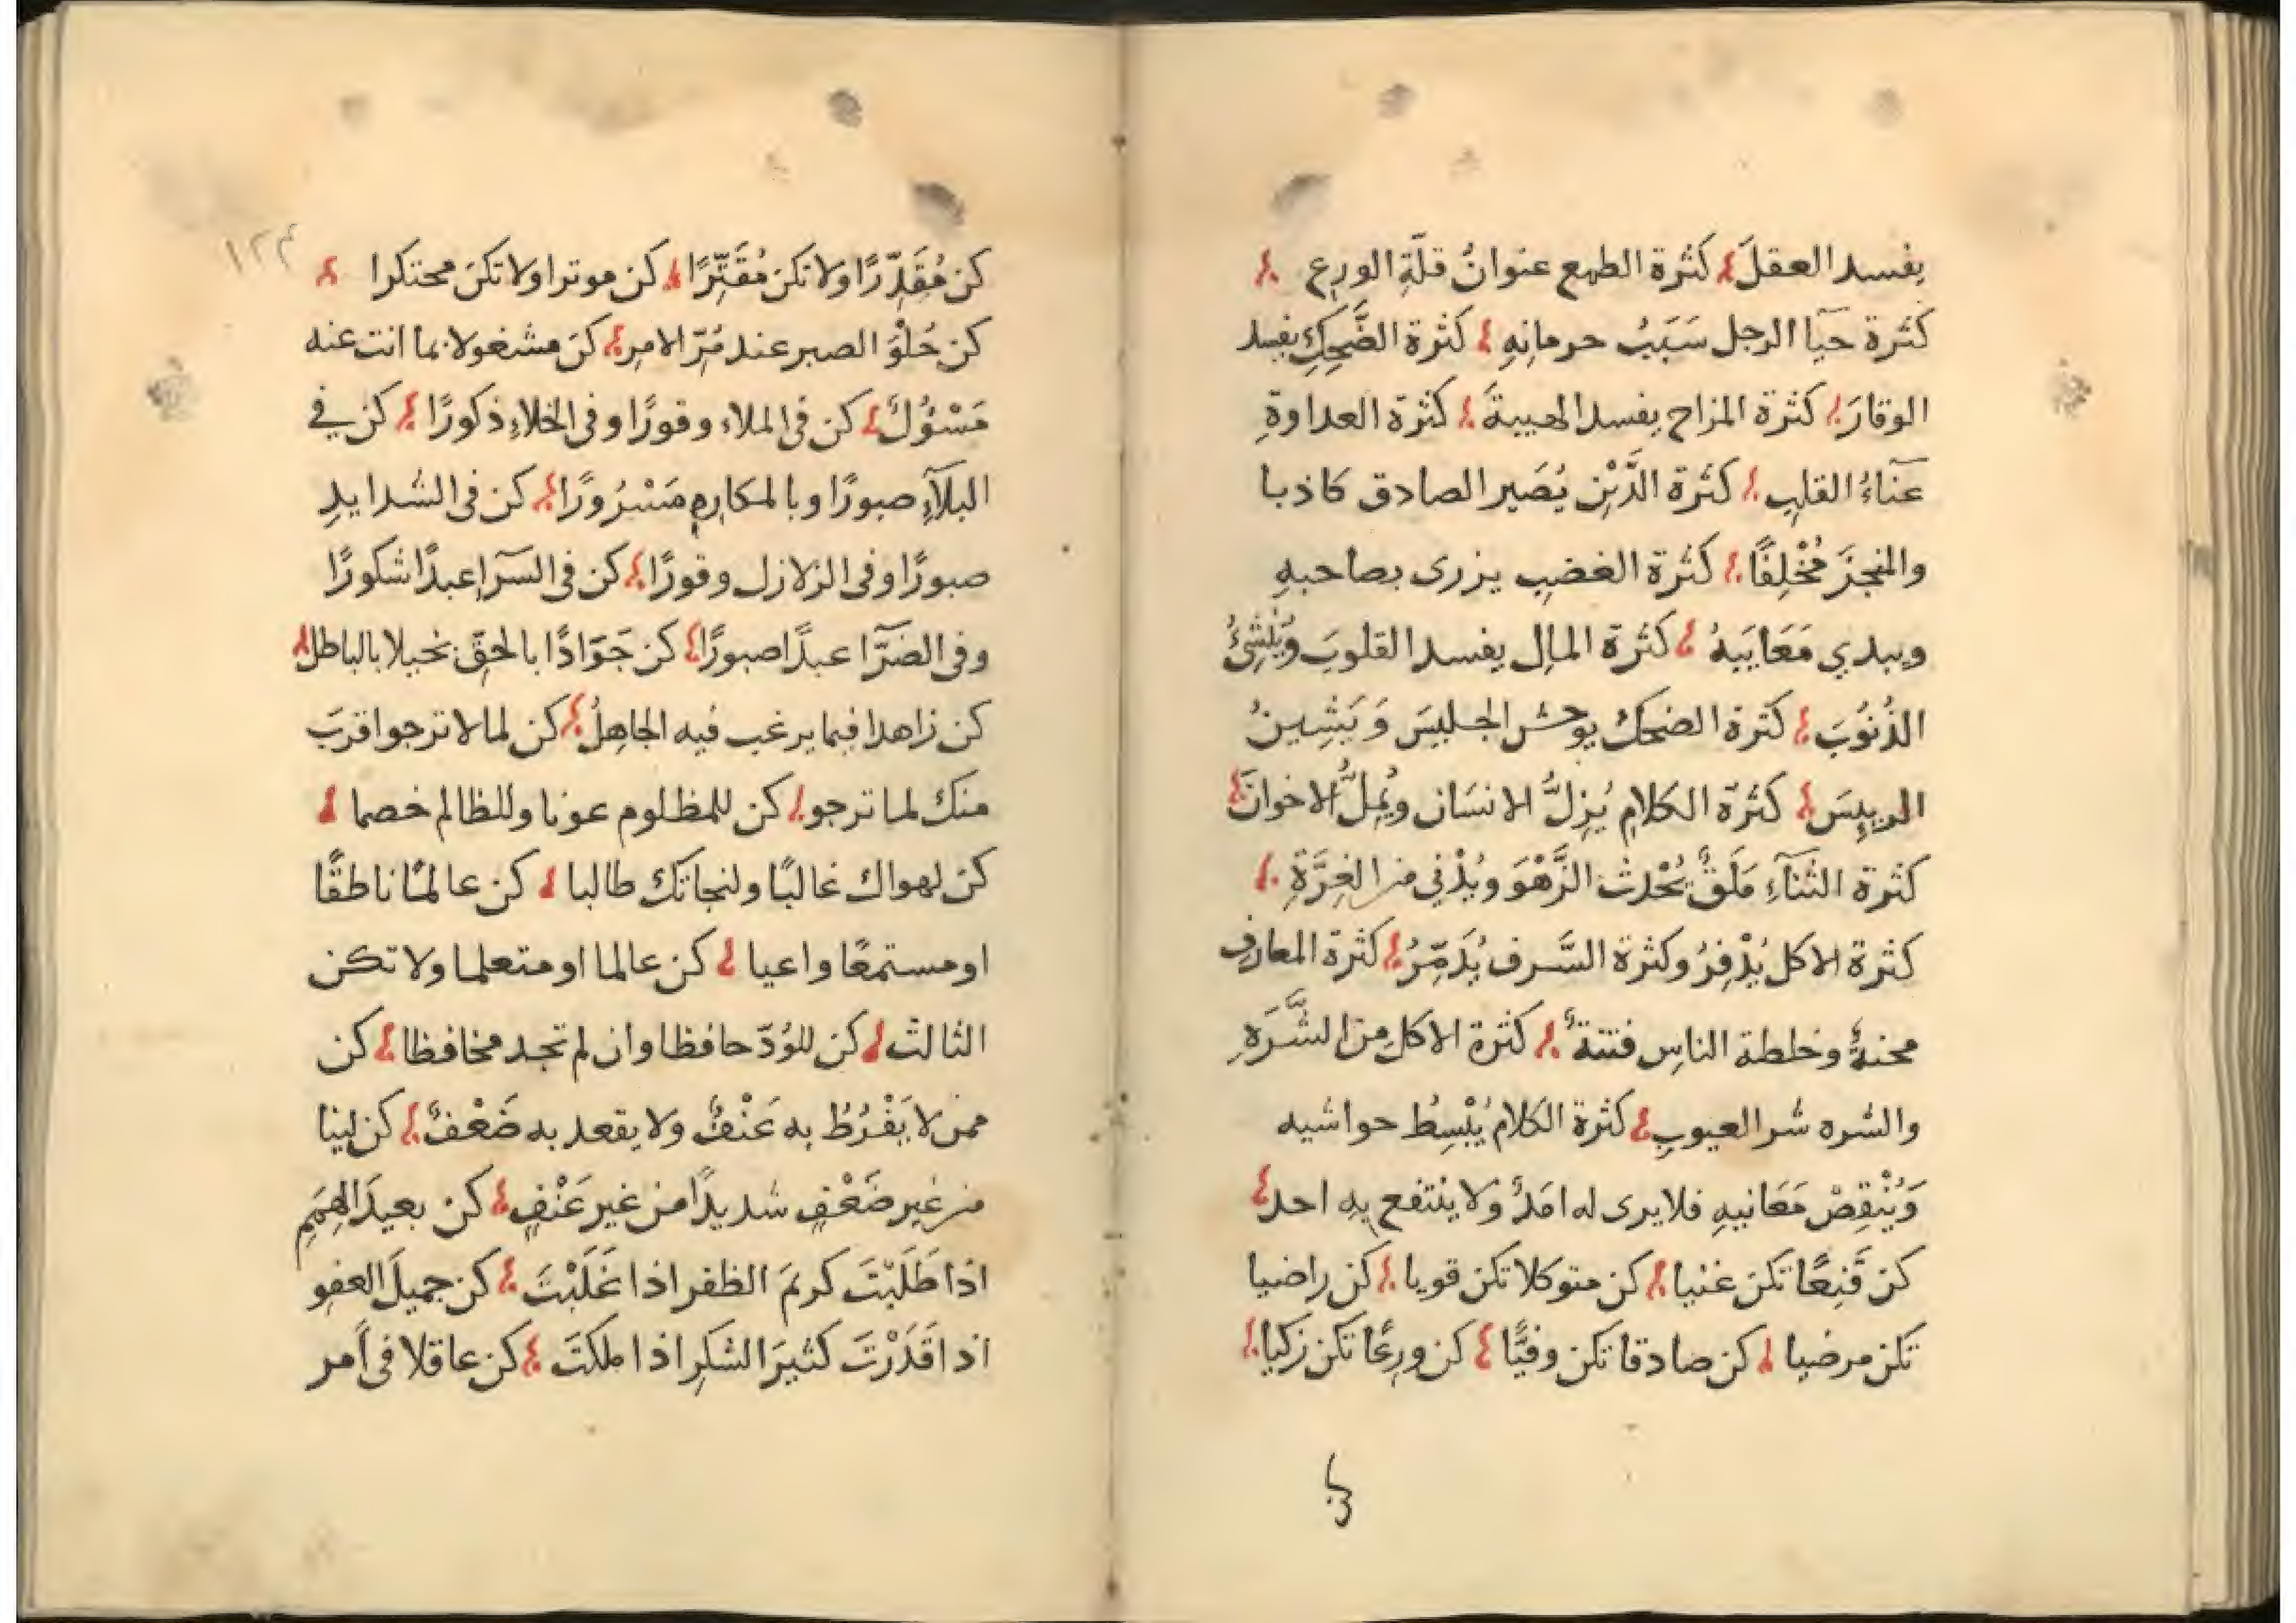 يفسد العقلَ كثرة الطمع عنوانُ قلّةِ الورع
كثرة حيآ الرجل سَبَبُ حرمانِهِ كثرة الضَّحِكِ يفسد
الوقارَ كثرة المزاح يفسد الهيبةَ كثرة العداوةِ
عَنآءُ القلبِ كثرة الدَّيْنِ يُصَير الصادق كاذبا
والمنجزَ مُخْلِفًا كثرة الغضبِ يزرى بصاحبهِ
ويبدي مَعَايَبهُ كثرة المالِ يفسد القلوبَ ويُنْشِئُ
الذُنوُبَ كثرة الضحكُ يوحش الجليسَ وَ يَشِينُ
الرييِسَ كثرة الكلامِ يُزِلُّ الانسَان ويُمِلُّ الاخوانَ
كثرة الثنآءِ مَلَقٌ يُحْدث الزَّهْوَ ويُدْني من الغِرَّةِ
كثرة الاكل يُذْفِرُ وكثرة السَّرف يُدَمِّرُ كثرة المعارفِ
محنةٌ وخلطة الناسِ فتنةٌ كثرة الاكلِ من الشَّرَهِ
والشره شر العيوبِ كثرة الكلامُ يُبْسِطُ حواشيه
وَيُنْقِصُ مَعَانيهِ فلا يرى له امَدٌ وَلا ينتفع بِهِ احد
كن قَنِعًا تكن غنيا كن متوكلا تكن قويا كن راضيا
تكن مرضيا كن صادقا تكن وفيًّا كن ورِعًا تكن زكيا
كن
١٢٤
كن مُقَدِّرًا ولا تكن مُقَتِّرًا كن موترا ولا تكن محتكرا
كن حُلْوَ الصبر عند مُرِّ الامرِ كن مشغولا بما انت عنه
مَسْؤُلٌ كن فى الملاء وقورًا وفى الخلاءِ ذكورًا كن في
البلآءِ صبورًا وبالمكارهِ مَسْرُورًا كن فى الشدايدِ
صبورًا وفى الزلازل وقورًا كن فى السرآ عبدًا شكورًا
وفى الضرّآ عبدًا صبورًا كن جَوَادًا بالحقّ بخيلا بالباطل
كن زاهدا فيما يرغب فيه الجاهِلُ كن لما لا ترجوا قربَ
منك لما ترجو كن للمظلوم عونا وللظالم خصما
كن لهواك غالبًا ولنجاتك طالبا كن عالمًا ناطقًا
او مستمعًا واعيا كن عالما او متعلما ولا تكن
الثالث كن للوُدّ حافظا وان لم تجد مخافظا كن
ممن لا يَفْرُطُ به عَنْفٌ ولا يقعد به ضَعْفٌ كن لينا
من غير ضَعْفٍ شديدًا من غير عَنْفٍ كن بعيدَ الهِمَمِ
اذا طَلَبْتَ كريمَ الظفر اذا غَلَبْتَ كن جميلَ العفوِ
اذا قَدَرْتَ كثيرَ الشكرِ اذا ملكتَ كن عاقلا فى اَمر